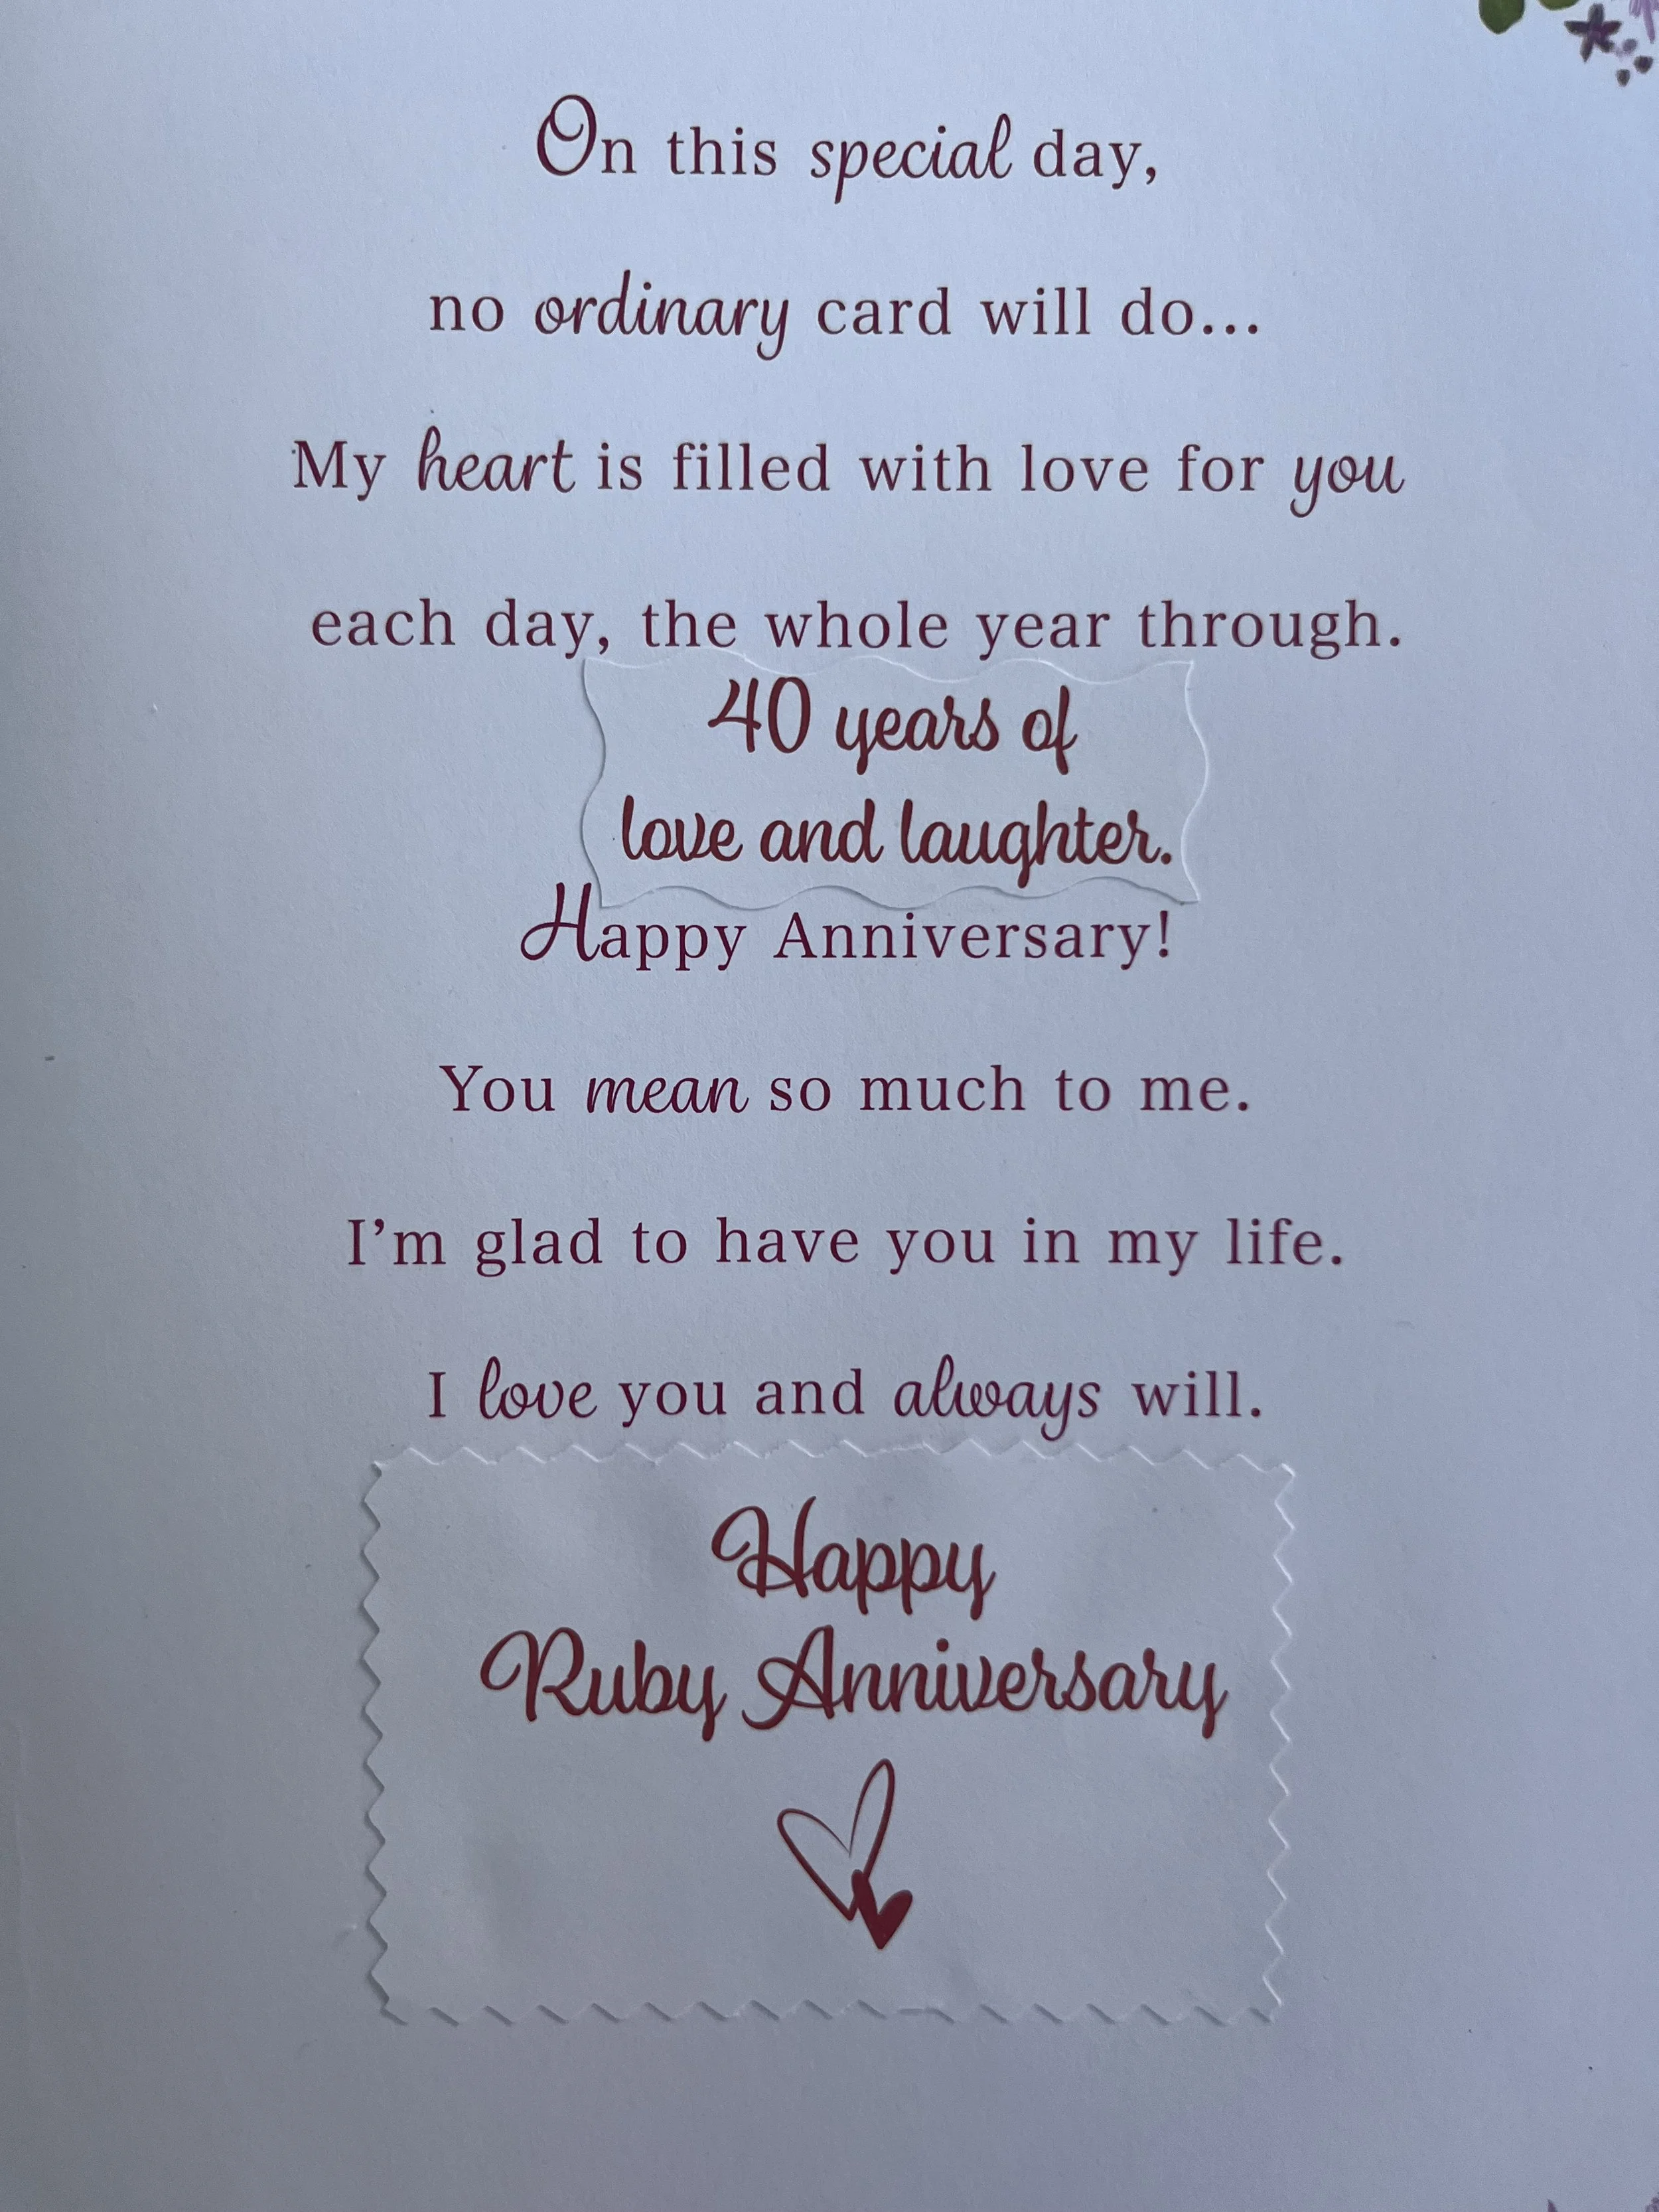 On this special day,
no ordinary card will do...
My heart is filled with love for you
each day, the whole year through.
40 years of
love and laughter.
Happy Anniversary!
You mean so much to me.
I’m glad to have you in my life.
I love you and always will.
Happy
Ruby Anniversary